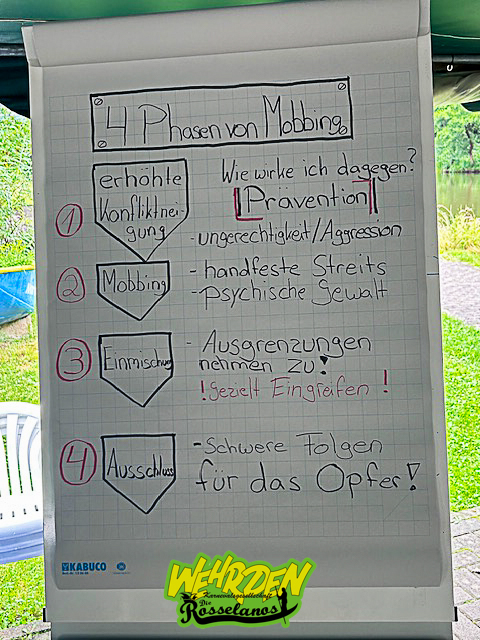 4 Phasen von Mobbing
Wie wirke ich dagegen?
Prävention
1
erhöhte
Konfliktnei
gung
-ungerechtigkeit/Aggression
2
Mobbing
- handfeste Streits
- psychische Gewalt
3
Einmischung
- Ausgrenzungen
nehmen zu!
! gezielt Eingreifen !
4
Ausschluss
-Schwere Folgen
für das Opfer!
KABUCO
WEHRDEN
Karnevalsgesellschaft
Die
Rosselanos